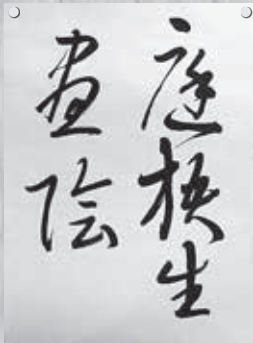 庭梧生
晝陰